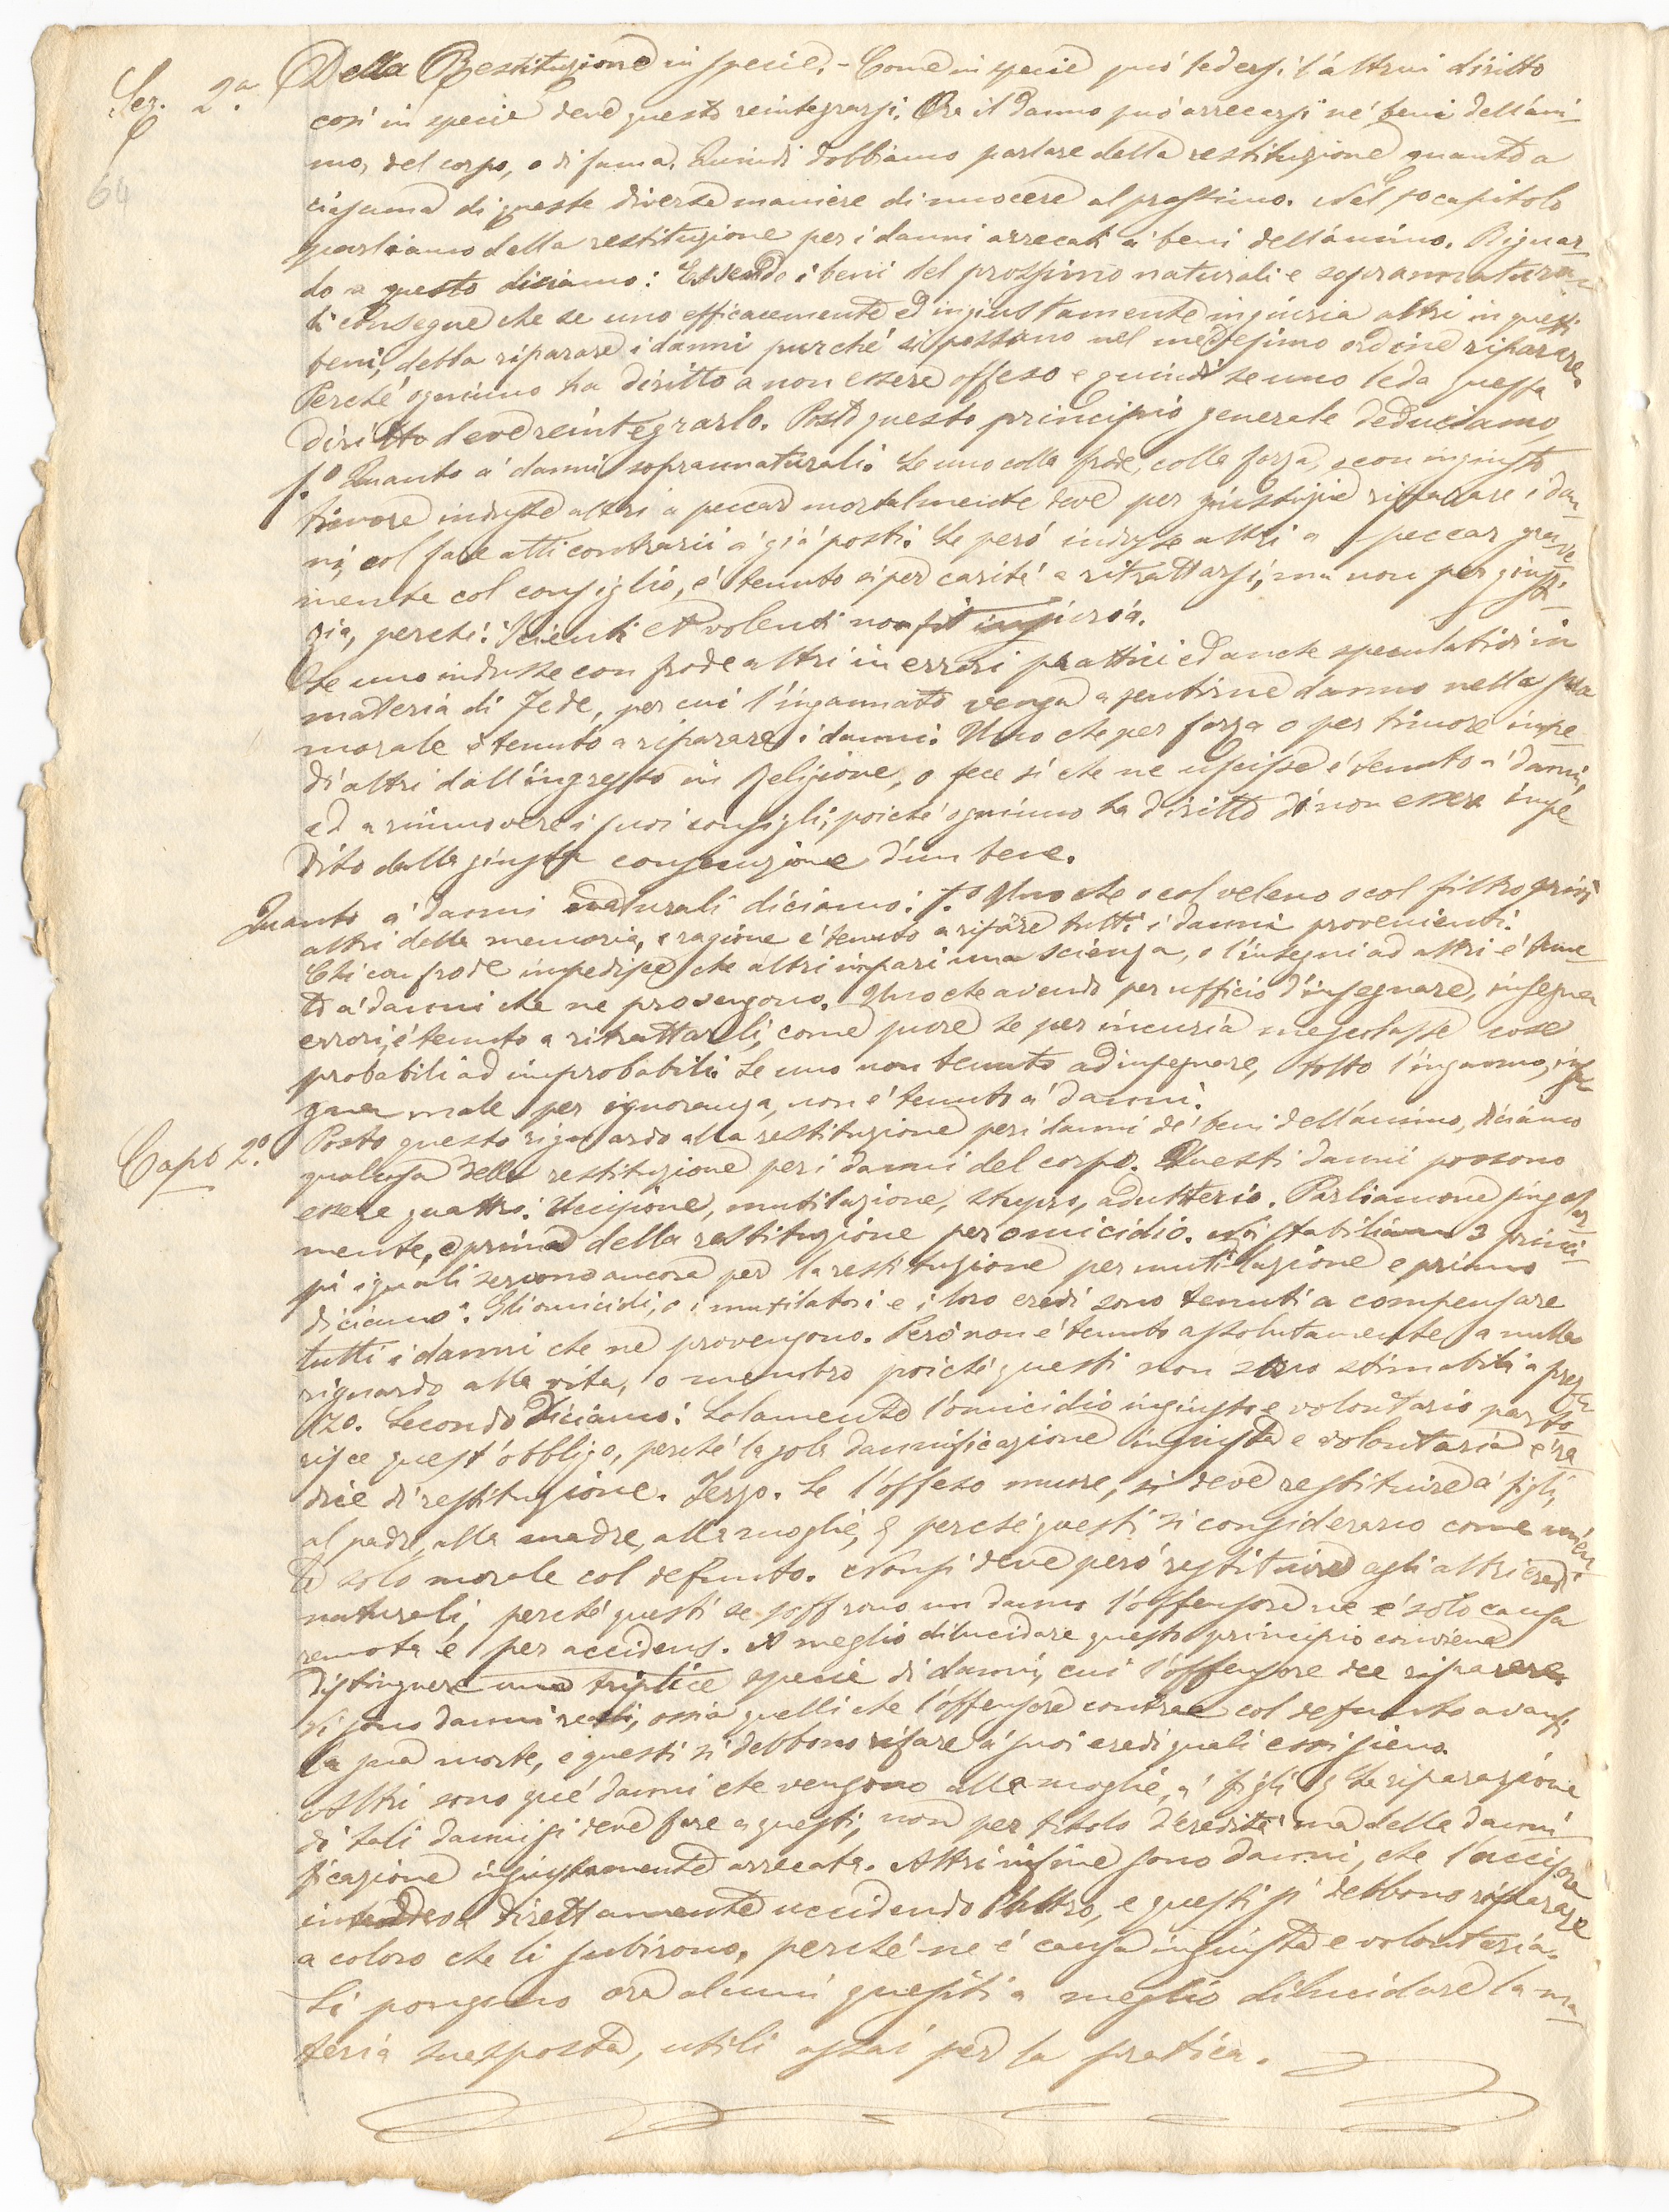 Sez. 2.a Della Restituzione in specie. - Come in specie può ledersi l'altrui diritto
64
così in specie deve questo reintegrarsi. Ora il danno può arrecarsi ne' beni dell'ani-
mo, del corpo, o di fama. Quindi dobbiamo parlare della restituzione quanto a
ciascuna di queste diverse maniere di nuocere al prossimo. Nel 1o capitolo
parliamo della restituzione per i danni arrecati a' beni dell'animo. Riguar-
do a questo diciamo: Essendo i beni del prossimo naturali e soprannatura-
li consegue che se uno efficacemente ed ingiustamente ingiuria altri in questi
beni, debba riparare i danni purché si possano nel medesimo ordine riparare.
Perché ognuno ha diritto a non essere offeso e quindi se uno leda questo
diritto deve reintegrarlo. Posto questo principio generale deduciamo
1.o Quanto a' danni soprannaturali. Se uno colla frode, colla forza, o con ingiusto
timore indusse altri a peccar mortalmente deve per giustizia riparare i dan-
ni, col fare atti contrarii a' già posti. Se però indusse altri a peccar grave-
mente col consiglio, è tenuto sì per carità a ritrattarsi, ma non per giusti-
zia, perché: Scienti et volenti non fit injuria.
Se uno indusse con frode altri in errori prattici ed anche speculativi in
materia di Fede, per cui l'ingannato venga a sentirne danno nella sua
morale è tenuto a riparare i danni. Uno che per forza o per timore impe-
dì altri dall'ingresso in Religione, o fece sì che ne uscisse è tenuto a' danni,
ed a rimuovere i suoi consigli, poiché ognuno ha diritto di non esser impe
dito dalla giusta consecuzione d'un bene.
Quanto a' danni naturali diciamo: 1.o Uno che o col veleno o col filtro privi
altri della memoria, e ragione è tenuto a rifare tutti i danni provenienti.
Chi con frode impedisce che altri impari una scienza, o l'insegni ad altri è tenu-
to a' danni che ne provengono. Uno che avendo per ufficio d'insegnare, insegna
errori, è tenuto a ritrattarli, come pure se per incuria mescolasse cose
probabili ad improbabili. Se uno non tenuto ad insegnare, tolto l'inganno, inse
gna male per ignoranza, non è tenuto a' danni.
Capo 2.o Posto questo riguardo alla restituzione per i danni de' beni dell'animo, diciamo
qualcosa della restituzione per i danni del corpo. Questi danni possono
essere quattro: Uccisione, mutilazione, stupro, adulterio. Parliamone singolar-
mente, e prima della restituzione per omicidio. Si stabiliamo 3 princi-
pi i quali servono ancora per la restituzione per mutilazione e primo
diciamo: Gli omicidi, o i mutilatori e i loro eredi sono tenuti a compensare
tutti i danni che ne provengono. Però non è tenuto assolutamente a nulla
riguardo alla vita, o membro poiché questi non sono stimabili a prez-
zo. Secondo diciamo: Solamente l'omicidio ingiusto e volontario parto
risce quest'obbligo, perché la sola dannificazione ingiusta e volontaria è ra
dice di restituzione. Terzo. Se l'offeso muore, si deve restituire a' figli,
al padre, alla madre, alla moglie, perché questi si considerano come
solo morale col defunto. Non si deve però restituire agli altri eredi
naturali, perché questi se soffrono un danno l'offensore ne è solo causa
remota e per accidens. A meglio dilucidare questo principio conviene
distinguere una triplice specie di danni, cui l'offensore dee riparare.
Vi sono danni reali, ossia quelli che l'offensore contrae col defunto avanti
la sua morte, e questi si debbono rifare a' suoi eredi quali essi sieno.
Altri sono que' danni che vengono alla moglie, a' figli La riparazione
di tali danni si deve fare a questi, non per titolo d'eredità ma della danni-
ficazione ingiustamente arrecata. Altri infine sono danni, che l'uccisore
intendeva direttamente uccidendo l'altro, e questi si debbono riparare
a coloro che li subirono, perché ne è causa ingiusta e volontaria.
Si pongono ora alcuni quesiti a meglio dilucidare la ma-
teria suesposta, utili assai per la pratica.